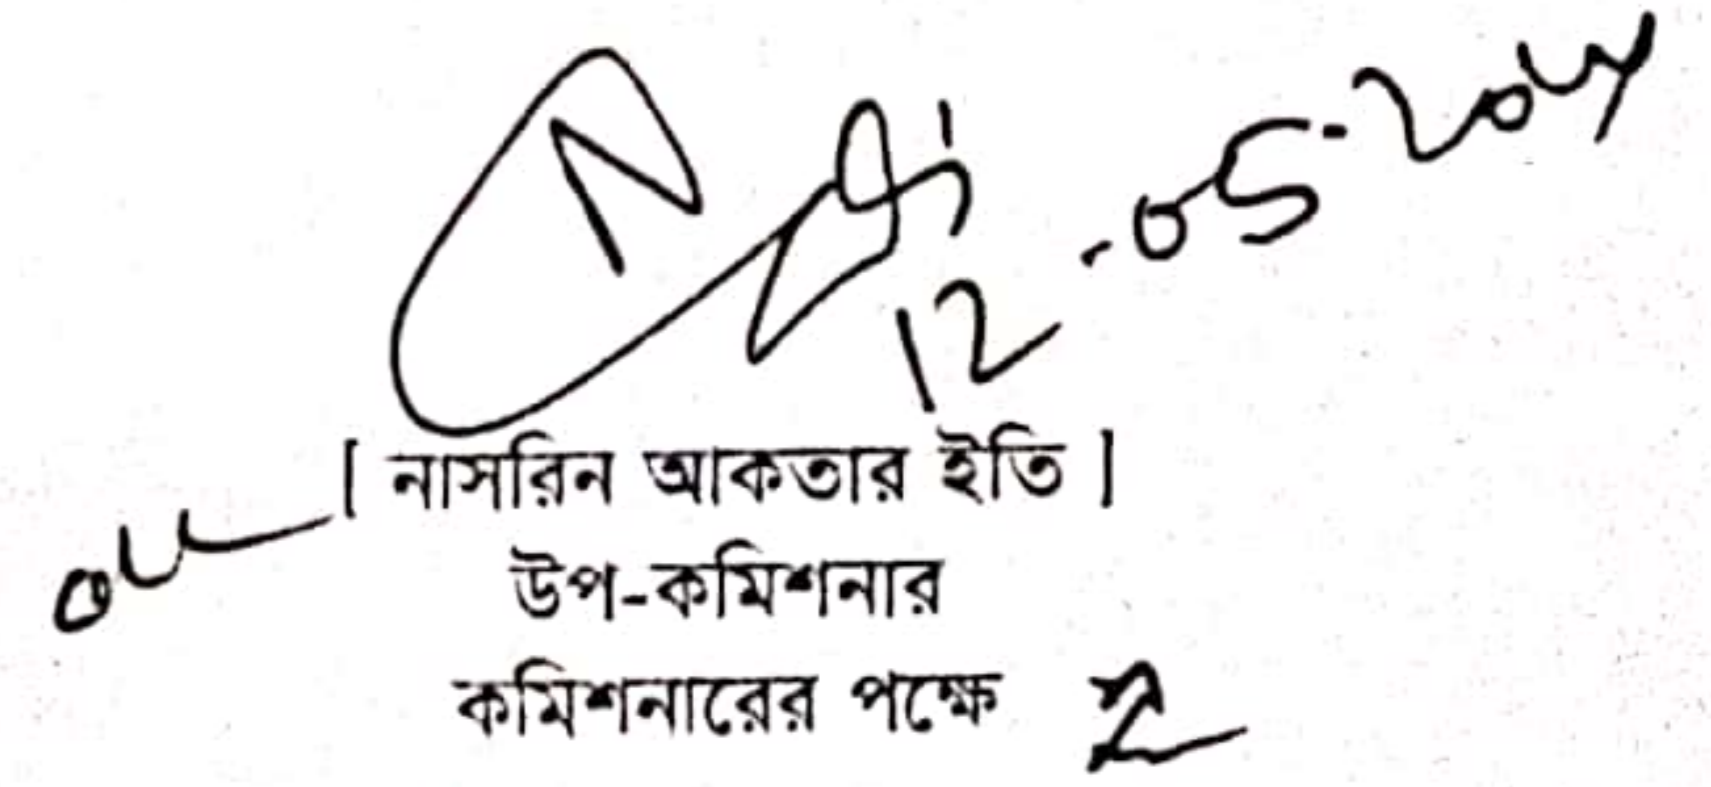 12-05-2024
[ নাসরিন আকতার ইতি ]
উপ-কমিশনার
কমিশনারের পক্ষে